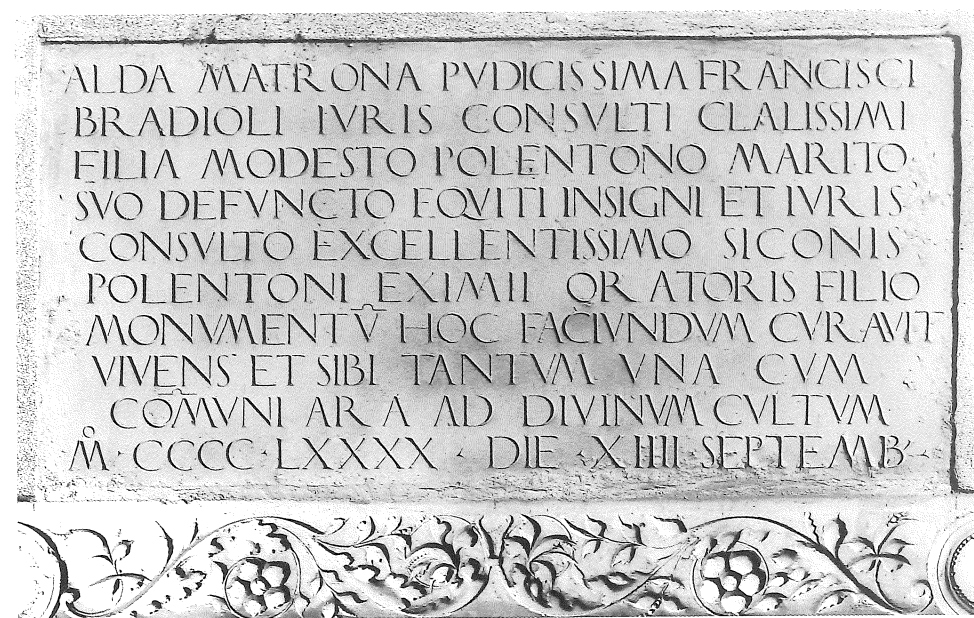 ALDA MATRONA PVDICISSIMA FRANCISCI
BRADIOLI IVRIS CONSVLTI CLALISSIMI
FILIA MODESTO POLENTONO MARITO
SVO DEFVNCTO EQVITI INSIGNI ET IVRIS
CONSVLTO EXCELLENTISSIMO SICONIS
POLENTONI EXIMII ORATORIS FILIO
MONVMENTV̅ HOC FACIVNDVM CVRAVIT
VIVENS ET SIBI TANTVM VNA CVM
CO̅MVNI ARA AD DIVINVM CVLTVM
M̊ · CCCC · LXXXX · DIE · XIIII · SEPTEMB ·